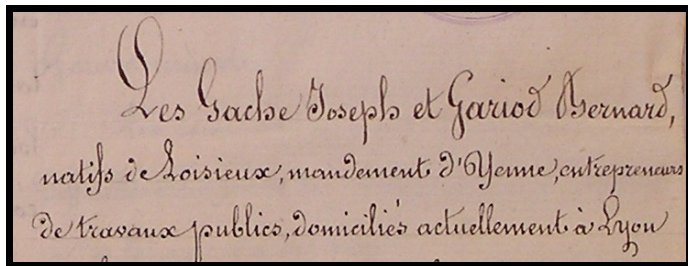 Les Gache Joseph et Gariod Bernard,
natifs de Loisieux, mandement d'Yenne, entrepreneurs
de travaux publics, domiciliés actuellement à Lyon